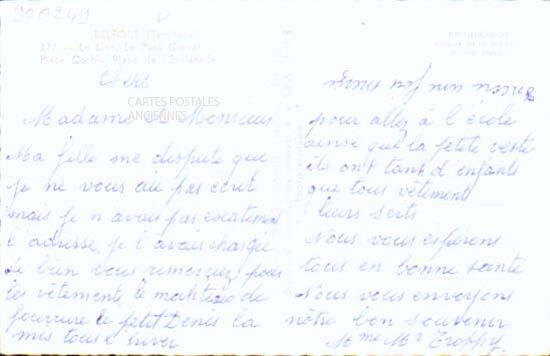 900249
BELFORT (Territoire)
177 - Le Lion, Le Pont Carnot
Place Corbis, Place de l'Esplanade
Chers
CARTES POSTALES
ANCIENNES
Madame et Monsieur
Ma fille me dispute que
je ne vous aie pas écrit
mais je n avais pas exactement
l adresse, je l avais chargé
de bien vous remerciez pour
les vêtements le manteau de
fourrure le petit Denis la
mis tous l hiver
pour allez à l'école
ainsi que la petite veste
ils ont tant d'enfants
que tous vêtement
leurs serts
Nous vous espérons
tous en bonne santé
Nous vous envoyons
nôtre bon souvenir
Mme Mr Troppy